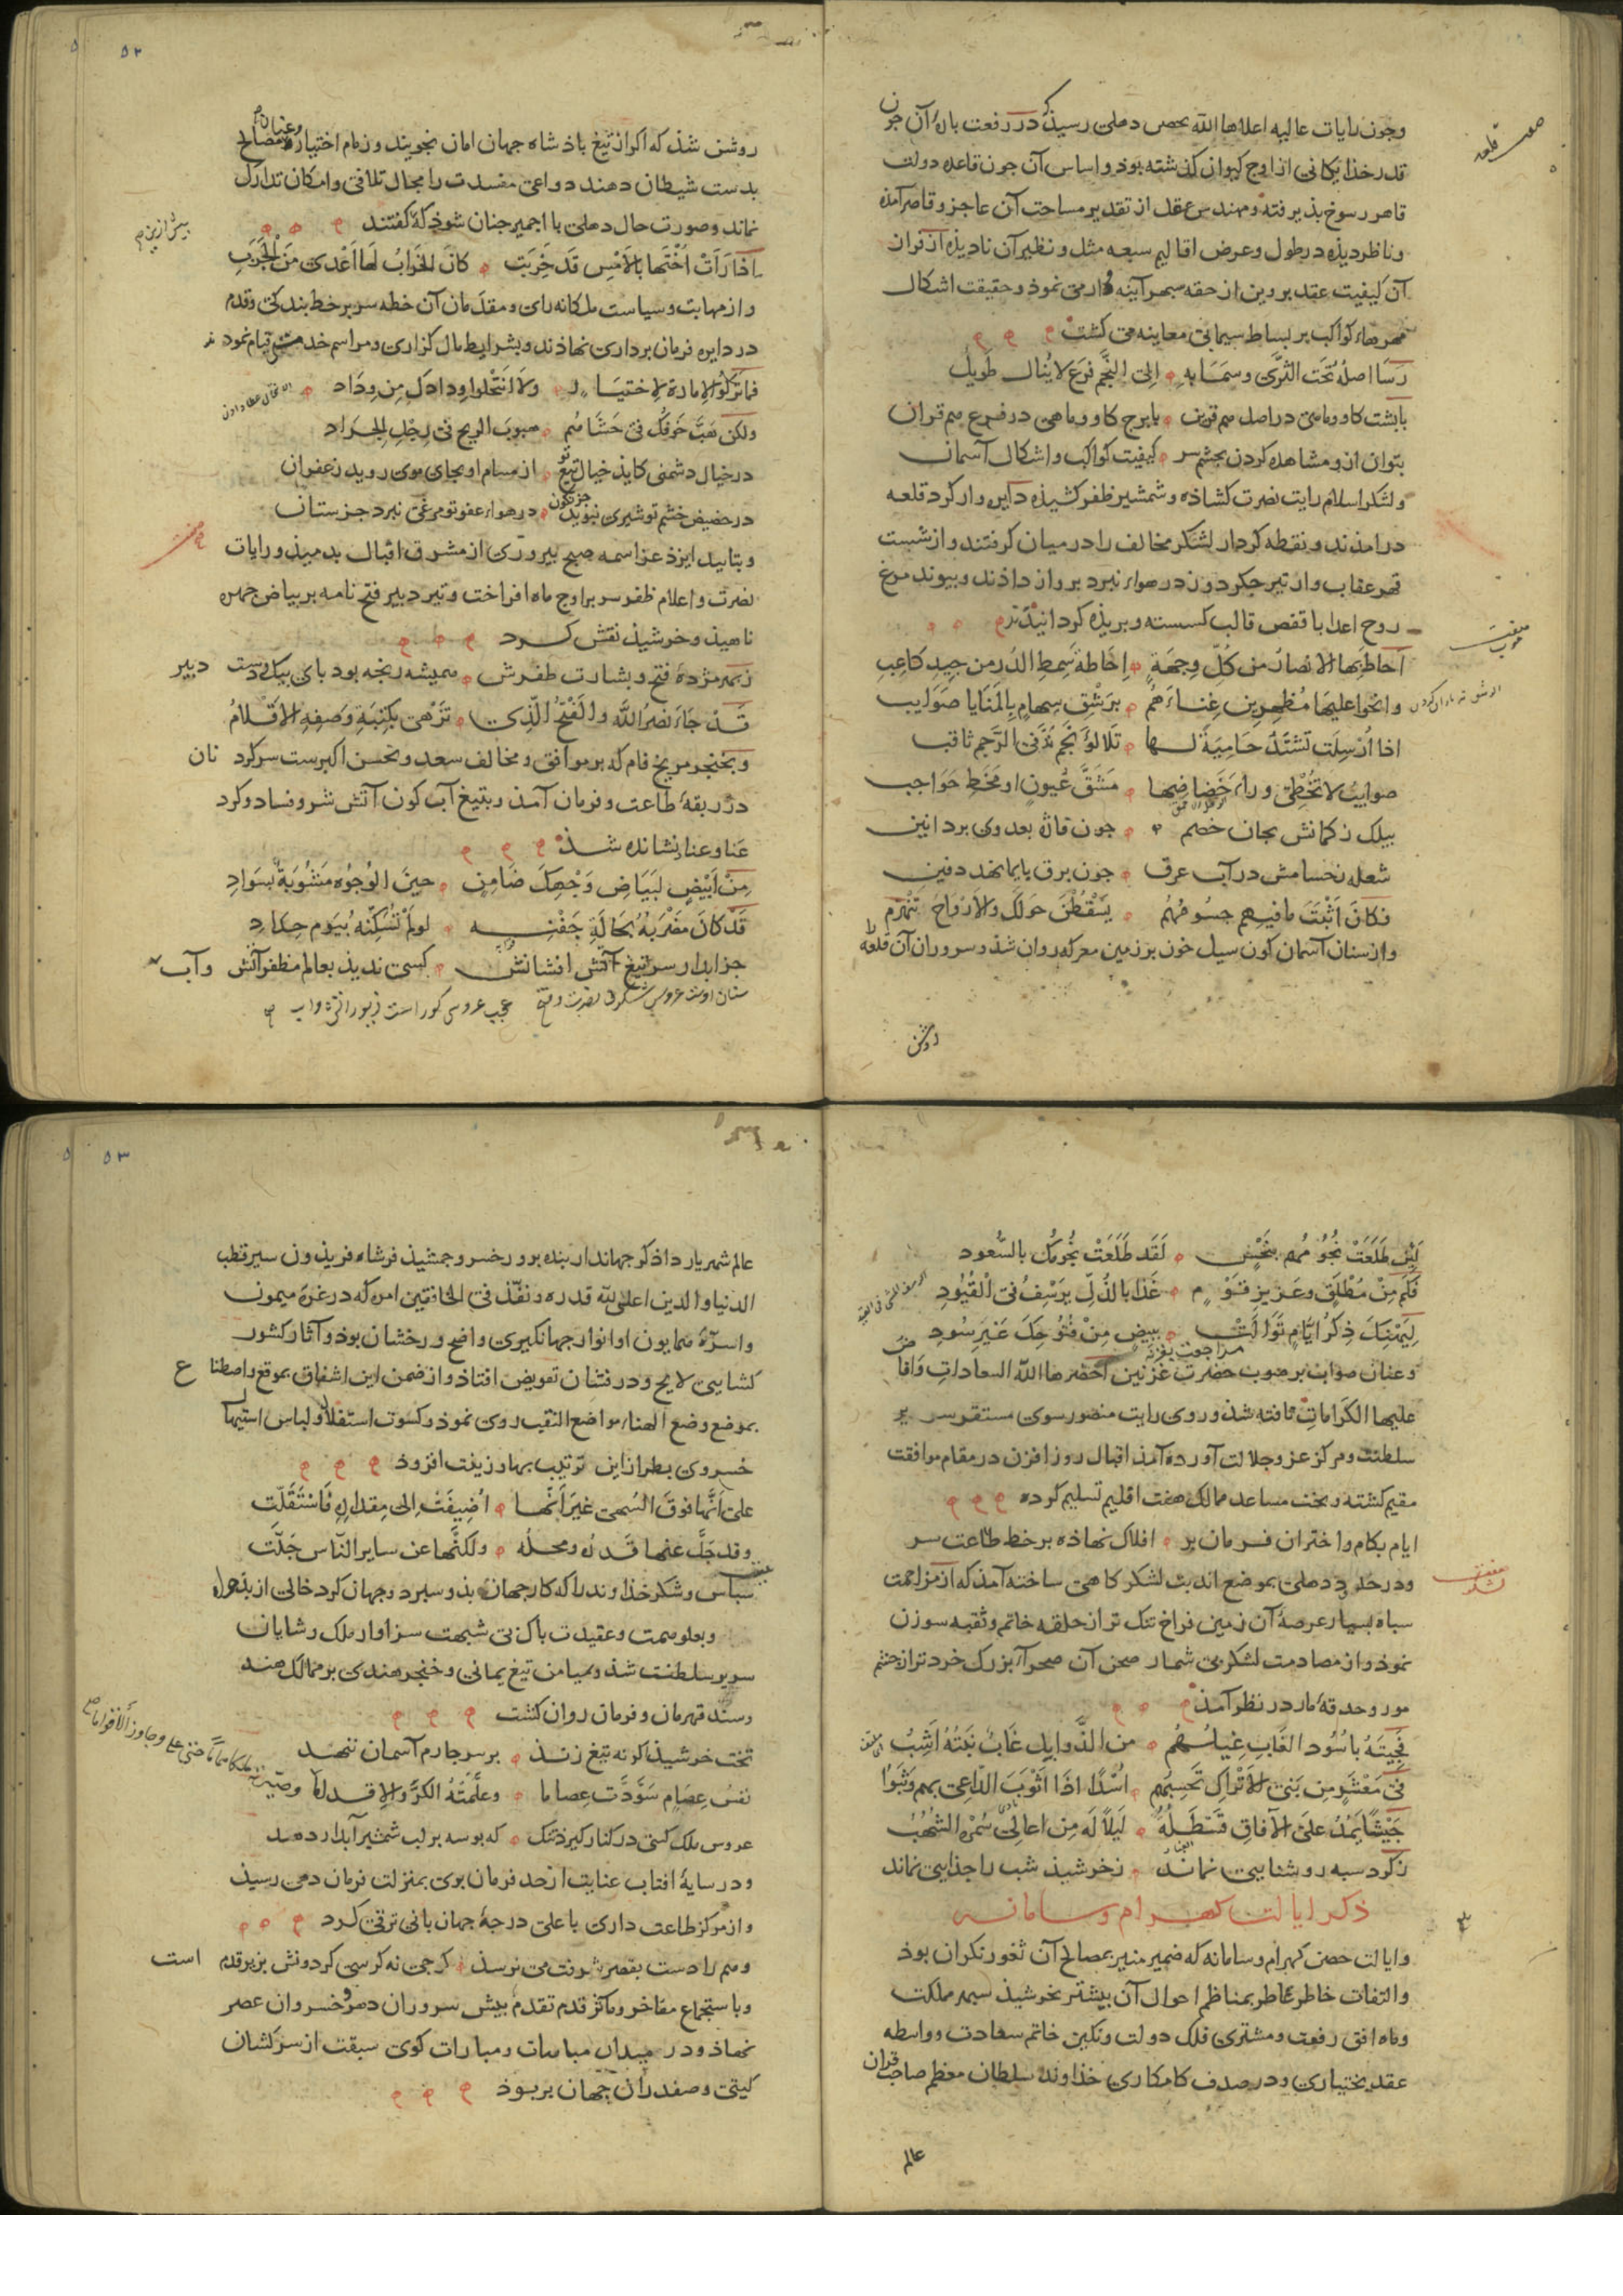 وجون رایات عالیه اعلاها الله بحصن دهلی رسیذ که در رفعت بارۀ آن جون
قدر خذایکانی از اوج کیوان کذشته بوذ و اساس آن جون قاعده دولت
قاهر رسوخ بذیرفته و مهندس عقل از تقدیر مساحت آن عاجز و قاصر آمذه
و ناظر دیذه در طول و عرض اقالیم سبعه مثل و نظیر آن نادیذه از فران
آن کیفیت عقد بروین از حقه سبهر آینه وار می نموذ و حقیقت اشکال
مهرهاء کواکب بر بساط سیمابی معاینه می کشت
رَسَا اصلُهُ تَحْتَ الثَّرَی وسَمَا بِهِ اِلی النَّجمِ فَرعٌ لا یُنال طَوِیلُ
با بشت کاو و ماهی در اصل هم قرین با برج کاو و ماهی در فرع هم قران
بتوان ازو مشاهده کردن بجشم سر کیفیت کواکب و اشکال آسمان
و لشکر اسلام رایت نصرت کشاذه و شمشیر ظفر کشیذه دایره وار کرد قلعه
درامذند و نقطه کردار لشکر مخالف را در میان کرفتند و از شست
قهر عقاب وار تیر جکردوز در هواء نبرد برواز داذند و بیوند مرغ
روح اعدا با قفص قالب کسسته و بریذه کردانیذند
اَحَاطَ بِهَا الانصارُ من کلّ وِجهَةٍ اِحَاطةَ سِمطِ الدُر من جِیدِ کاعِبِ
وانحَوا علیها مُظهِرین غِناءَهُم برَشْقِ سِهامٍ بِالمَنَایا صَوَایب
اذا اُرْسِلَت تَشتَدّ حَامِیَةً لها تَلألُؤَ نَجمٍ فی الرَّجمِ ثاقب
صوایبُ لا تُخطِی وراءَ مَشَقَّ عُیونٍ او مَخَطِّ حَوَاجب
بیلک ز کمانش بجان خصم جون قازه بعدوی برد انین
شعله ز حسامش در آب عرق جون برق بایما نهد دفین
فکانَ اثْبَتَ ما فیهم جسُومُهُمُ یَسْقُطْنَ حَولَکَ وَالاَرْوَاحُ تَنْهَزِم
و از سنان آسمان کون سیل خون بر زمین معرکه روان شذ و سروران آن قلعه
روشن
۵۲
روشن شذ که اکر از تیغ باذشاه جهان امان نجویند و زمام اختیار و عنان مصالح
بدست شیطان دهند دواعی مفسدت را مجال تلافی و امکان تدارک
نماند و صورت حال دهلی با اجمیر جنان شوذ که کفتند
اذَا رَاَتْ اُخْتَها بِالاَمْسِ قَد خَرِبَت کانَ الخَرابُ لَها اَعْدَی مِنَ الجَرَبِ
و از مهابت و سیاست ملکانه رای و مقدمان آن خطه سر بر خط بندکی و قدم
در دایره فرمان برداری نهاذند و بشرایط مال کزاری و مراسم خدمتی قیام نموذند
فما ترکُوا الاِمارةَ لاِختیَارٍ ولا انتَحَلُوا وِدادکَ مِن وِدَاد
ولکن هَبَّ خَوفُکَ فی حَشَاهُم هبوبَ الریحِ فی رِجْلِ الجَراد
در خیال دشمنی کایذ خیال تیغ تو از مسام او بجای موی روید زعفران
در حضیض خشم تو شیری نبوید جز نکون در هواء عفو تو مرغی نبرد جز ستان
و بتایید ایزذ عز اسمه صبح بیروزی از مشرق اقبال بدمیذ و رایات
نصرت و اعلام ظفر سر بر اوج ماه افراخت و تیر دبیر فتح نامه بر بیاض جهره
ناهیذ و خورشیذ نقش کرد
ز بهر مژدۀ فتح و بشارت ظفرش همیشه رنجه بود بای بیک و دست دبیر
قَد جَاءَ نَصرُ اللّه والفَتْحُ الَّذِی تَزْهَی بِکِتبَةِ وَصفِهِ الاَقْلامُ
و بخنجر مریخ فام که بر موافق و مخالف سعد و نحس اکبرست سرکردنان
در ربقه طاعت و فرمان آمذ و بتیغ آب کون آتش شر و فساد و کرد
عَنا و عناد نشانده شذ
مِنْ اَبْیَضٍ لبَیَاضِ وَجْهِکَ ضَامِنٍ حینَ الوُجُوهُ مَشُوبَةٌ بسَوَادِ
قَد کانَ مَضْرِبُهُ بحَالَةِ جَفْنِهِ لو لَمْ تُسَکِّنْهُ بِیَومِ جِلَادِ
جز ابدار سر تیغ آتش افشانش کسی ندیذ بعالم مظفر آتش و آب
۵۳
لَئِن طَلَعَتْ نُجُومُهُم بِنَحْسٍ لَقَد طَلَعَتْ نُجُومُکَ بالسُّعود
فَکَم مِنْ مُطْلَقٍ وعَزِیزِ قَوْمٍ غَدا بالذُلِّ یَرْسُفُ فی الْقُیُودِ
لِیَهْنِکَ ذِکْرُ اَیَّامٍ تَوالَتْ بِبِیضٍ مِنْ فُتُوحِکَ غَیرِ سُودِ
و عنان صواب بر صوب حضرت غزنین احضرها الله السعادات وافا
علیها الکرامات تافته شذ و روی رایت منصور سوی مستقر سریر
سلطنت و مرکز عز و جلالت آورده آمذ اقبال روز افزون در مقام موافقت
مقیم کشته و بخت مساعد ممالک هفت اقلیم تسلیم کرده
ایام بکام و اختران فرمان بر افلاک نهاذه بر خط طاعت سر
و در حد دهلی بموضع اندبت لشکرکاهی ساخته آمذ که از مزاحمت
سباه بسیار عرصۀ آن زمین فراخ تنک تر از حلقه خاتم و ثقبه سوزن
نموذ و از مصادمت لشکر بی شمار صحن آن صحراء بزرک خردتر از جشم
مور و حدقۀ مار در نظر آمذ
فی مَعْشَرٍ مِن بَنِی الاَتْرَاکِ تَحْسِبُهُم اُسْدًا اذَا اَثْوَبَ الدّاعِی بهم وَثَبُوا
ز کرد سبه روشنایی نماند ز خورشیذ شب را جذایی نماند
ذکر ایالت کهرام و سامانه
و ایالت حصن کهرام و سامانه که ضمیر منیر بمصالح آن ثغور نکران بوذ
و التفات خاطر عاطر بمناظم احوال آن بیشتر بخورشیذ سبهر مملکت
و ماه افق رفعت و مشتری فلک دولت و نکین خاتم سعادت و واسطه
عقد بختیاری و در صدف کامکاری خذاوند سلطان معظم صاحب قران
عالم
عالم شهریار داذکر جهاندار بنده برور خسرو جمشیذ فر شاه فریذون سیر قطب
الدنیا و الدین اعلی الله قدره و نفّذ فی الخافقین امره که در غرۀ میمون
و اسرّۀ همایون او انوار جهانکیری واضح و رخشان بوذ و آثار کشور
کشایی لایح و درفشان تفویض افتاذ و از ضمن این اشفاق بموقع و اصطناع
بموضع وضع الهناء مواضع النقب روی نموذ و کسوت استقلال و لباس استیهال
خسروی بطراز این ترتیب بها و زینت افزوذ
علی اَنَّها فوقَ السُهی غیرَ اَنّهَا اُضِیفَتْ اِلی مِقدَارِهِ فَاسْتَقَلَّتِ
وقد جَلَّ عنها قَدرُه ومحلُه ولکنَّها عن سایر النّاس جَلّتِ
سباس و شکر خذاوند را که کار جهان بذو سبرد و جهان کرد خالی از
و بعلو همت و عقیدت باک بی شبهت سزاوار ملک و شایان
سریر سلطنت شذ و میامن تیغ یمانی و خنجر هندی بر ممالک هند
و سند قهرمان و فرمان روان کشت
تخت خورشیذ ارنه تیغ زنذ بر سر جارم آسمان ننهد
نفسُ عِصَامٍ سَوَّدَت عِصاما وعلَّمَتْهُ الکَرَّ والاِقداما
عروس ملک کسی در کنار کیرذ تنک که بوسه بر لب شمشیر آبدار دهد
و در سایۀ افتاب عنایت از حد فرمان بری بمنزلت فرمان دهی رسیذ
و از مرکز طاعت داری با علی درجۀ جهان بانی ترقی کرد
و هم را دست بقصر شرفت می نرسذ کرجه نه کرسی کردونش بزیر قدم است
و باستجماع مفاخر و مآثر قدم تقدم بیش سروران دهر و خسروان عصر
نهاذ و در میدان مباهات و مبارات کوی سبقت از سرکشان
کیتی و صفدران جهان بربوذ